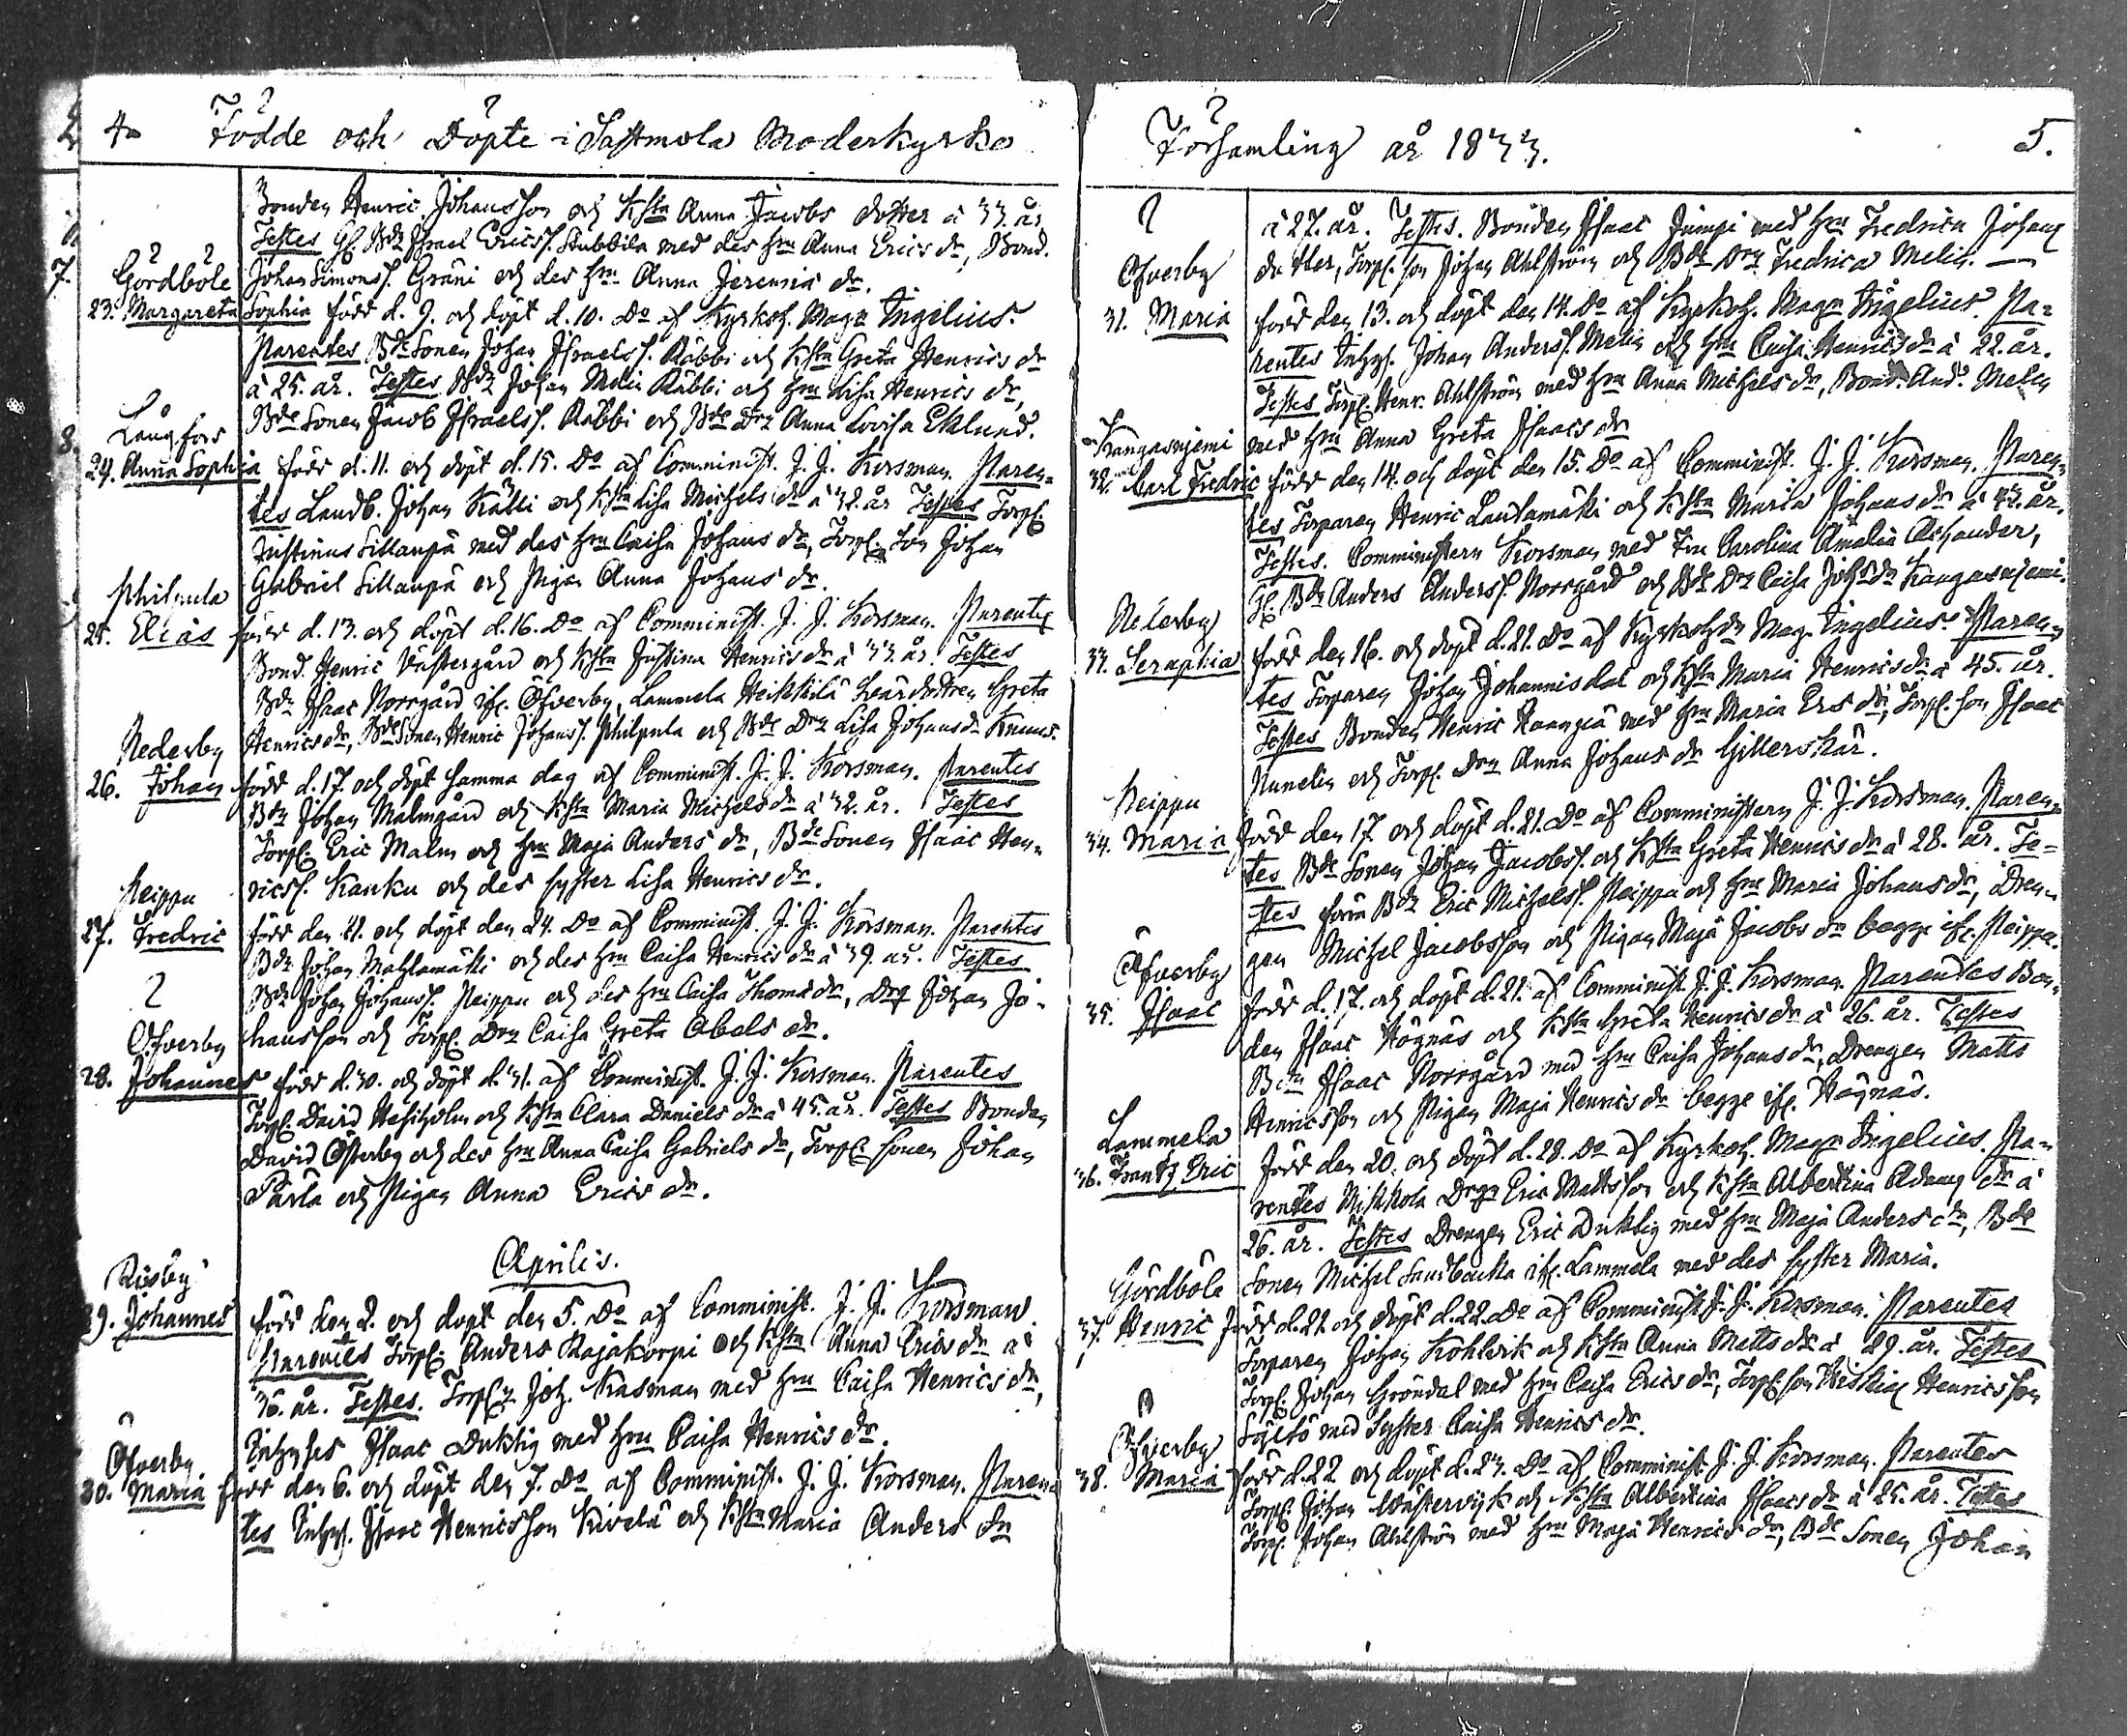 4. Födde och Döpte i Sastmola Moderkyrko
Bonden Henric Johansson och Hsta Anna Jacobs dotter à 33. år
Testes Gl. Bdn Israel Ericss. Stubbila med des Hru Anna Erics dr, Bond.
Gårdböle Johan Simonss. Gräni och des Hru Anna Jeremiæ dr.
23. Margareta Sophia född d. 9. och döpt d. 10. Do af Kyrkoh. Magr Ingelius.
Parentes Bde Sonen Johan Israelss. Räbbi och Hsta Greta Henrics dr
à 25. år. Testes Bdn Johan Melin Räbbi och Hru Lisa Henrics dr,
Bde Sonen Jacob Israelss. Räbbi och Bde Drn Anna Lovisa Eklund.
Långfors
24. Anna Sophia född d. 11. och döpt d. 15. Do af Comminist. J. J. Korsman. Paren-
tes Landb. Johan Källi och Hsta Lisa Michels dr à 32. år Testes Torp.
Justinus Sillanpä med des Hru Caisa Johans dr, Torp. Son Johan
Gabriel Sillanpä och Pigan Anna Johans dr.
Philpula
25. Elias född d. 13. och döpt d. 16. Do af Comminist. J. J. Korsman. Parentes
Bond. Henric Västergård och Hsta Justina Henrics dr à 33. år. Testes
Bdn Isaac Norrgård ifr. Öfverby, Lammela Heikkilä Greta
Henrics dr, Bde Sonen Henric Johanss. Philpula och Bde Drn Lisa Johans dr
Nederby
26. Johan född d. 17. och döpt samma dag af Comminist. J. J. Korsman. Parentes
Bdn Johan Malmgård och Hsta Maria Michels dr à 32. år. Testes
Torp. Eric Malm och Hru Maja Anders dr, Bde Sonen Isaac Hen-
ricss. Kanku och des syster Lisa Henrics dr.
Peippu
27. Fredric född den 21. och döpt den 24. Do af Comminist. J. J. Korsman. Parentes
Bdn Johan Mahlamäki och des Hru Caisa Henrics dr à 39. år. Testes
Bdn Johan Johanss. Peippu och des Hru Caisa Thomæ dr, Drg Johan Jo-
hansson och Torp. Drn Caisa Greta Abels dr.
Öfverby
28. Johannes född d. 30. och döpt d. 31. af Comminist. J. J. Korsman. Parentes
Torp. David och Hsta Clara Daniels dr à 45. år. Testes Bonden
David Österby och des Hru Anna Caisa Gabriels dr, Torp. Sonen Johan
Pärla och Pigan Anna Erics dr.
Aprilis.
Risby
29. Johannes född den 2. och döpt den 5. Do af Comminist. J. J. Korsman.
Parentes Torp. Anders Rajakorpi och Hsta Anna Erics dr à
36. år. Testes. Torp. Joh. Kasman med Hru Caisa Henrics dr,
Inhyses Isaac Duktig med Hru Caisa Henrics dr.
Öfverby
30. Maria född den 6. och döpt den 7. Do af Comminist. J. J. Korsman. Paren-
tes Inhys. Isaac Henricsson Kivelä och Hsta Maria Anders dr
Församling år 1833. 5.
à 27. år. Testes. Bonden Isaac Jumpi med Hru Fredrica Johans
dotter, Torp. son Johan Ahlström och Bde Drn Fredrica Melin.
Öfverby
31. Maria född den 13. och döpt den 14. Do af Kyrkoh. Magr Ingelius. Pa-
rentes Inhys. Johan Anderss. Melin och Hru Caisa Henrics dr à 22. år.
Testes Torp. Henr. Ahlström med Hru Anna Michels dr, Bond. And. Melen
med Hru Anna Greta Isaacs dr
Kangasniemi
32. Carl Fredric född den 14. och döpt den 15. Do af Comminist. J. J. Korsman. Paren-
tes Torparen Henric Lautamäki och Hsta Maria Johans dr à 43. år.
Testes. Comministern Korsman med Fru Carolina Amalia Achander,
Gl. Bdn Anders Anderss. Norrgård och Bde Drn Caisa Johs dr Kangasniemi.
Nederby
33. Seraphia född den 16. och döpt d. 21. Do af Kyrkohdn Magr Ingelius. Paren-
tes Torparen Johan Johannisdal och Hsta Maria Henrics dr à 45. år.
Testes Bonden Henric Haangiä med Hru Maria Ers dr, Torp. son Isaac
Numelin och Torp. Drn Anna Johans dr Gillerskär.
Peippu
34. Maria född den 17. och döpt d. 21. Do af Comministern J. J. Korsman. Paren-
tes Bde Sonen Johan Jacobss. och Hsta Greta Henrics dr à 28. år. Te-
stes förra Bdn Eric Michelss. Peippu och Hru Maria Johans dr, Dren-
gen Michel Jacobsson och Pigan Maja Jacobs dr begge ifr. Peippu.
Öfverby
35. Isaac född d. 17. och döpt d. 21. af Comminist J. J. Korsman. Parentes Bon-
den Isaac Högnäs och Hsta Greta Henrics dr à 26. år. Testes
Bdn Isaac Norrgård med Hru Caisa Johans dr, Drengen Matts
Henricsson och Pigan Maja Henrics dr begge ifr. Högnäs.
Lammela
36. Frantz Eric född den 20. och döpt d. 28. Do af Kyrkoh. Magr Ingelius. Pa-
rentes Mikkola Drgn Eric Mattsson och Hsta Albertina Adams dr à
26. år. Testes Drengen Eric Duktig med Hru Maja Anders dr, Bde
Sonen Michel Sandbacka ifr. Lammela med des syster Maria.
Gårdböle
37. Henric född d. 21. och döpt d. 22. Do af Comminist J. J. Korsman. Parentes
Torparen Johan Kohlvik och Hsta Anna Matts dr à 29. år. Testes
Torp. Johan Gröndal med Hru Caisa Erics dr, Torp. son Henricsson
med Syster Caisa Henrics dr.
Öfverby
38. Maria född d. 22 och döpt d. 23. Do af Comminist. J. J. Korsman. Parentes
Torp. Johan Västervik och Hsta Albertina Isaacs dr à 25. år. Testes
Torp. Johan Ahlström med Hru Maja Henrics dr, Bde Sonen Johan